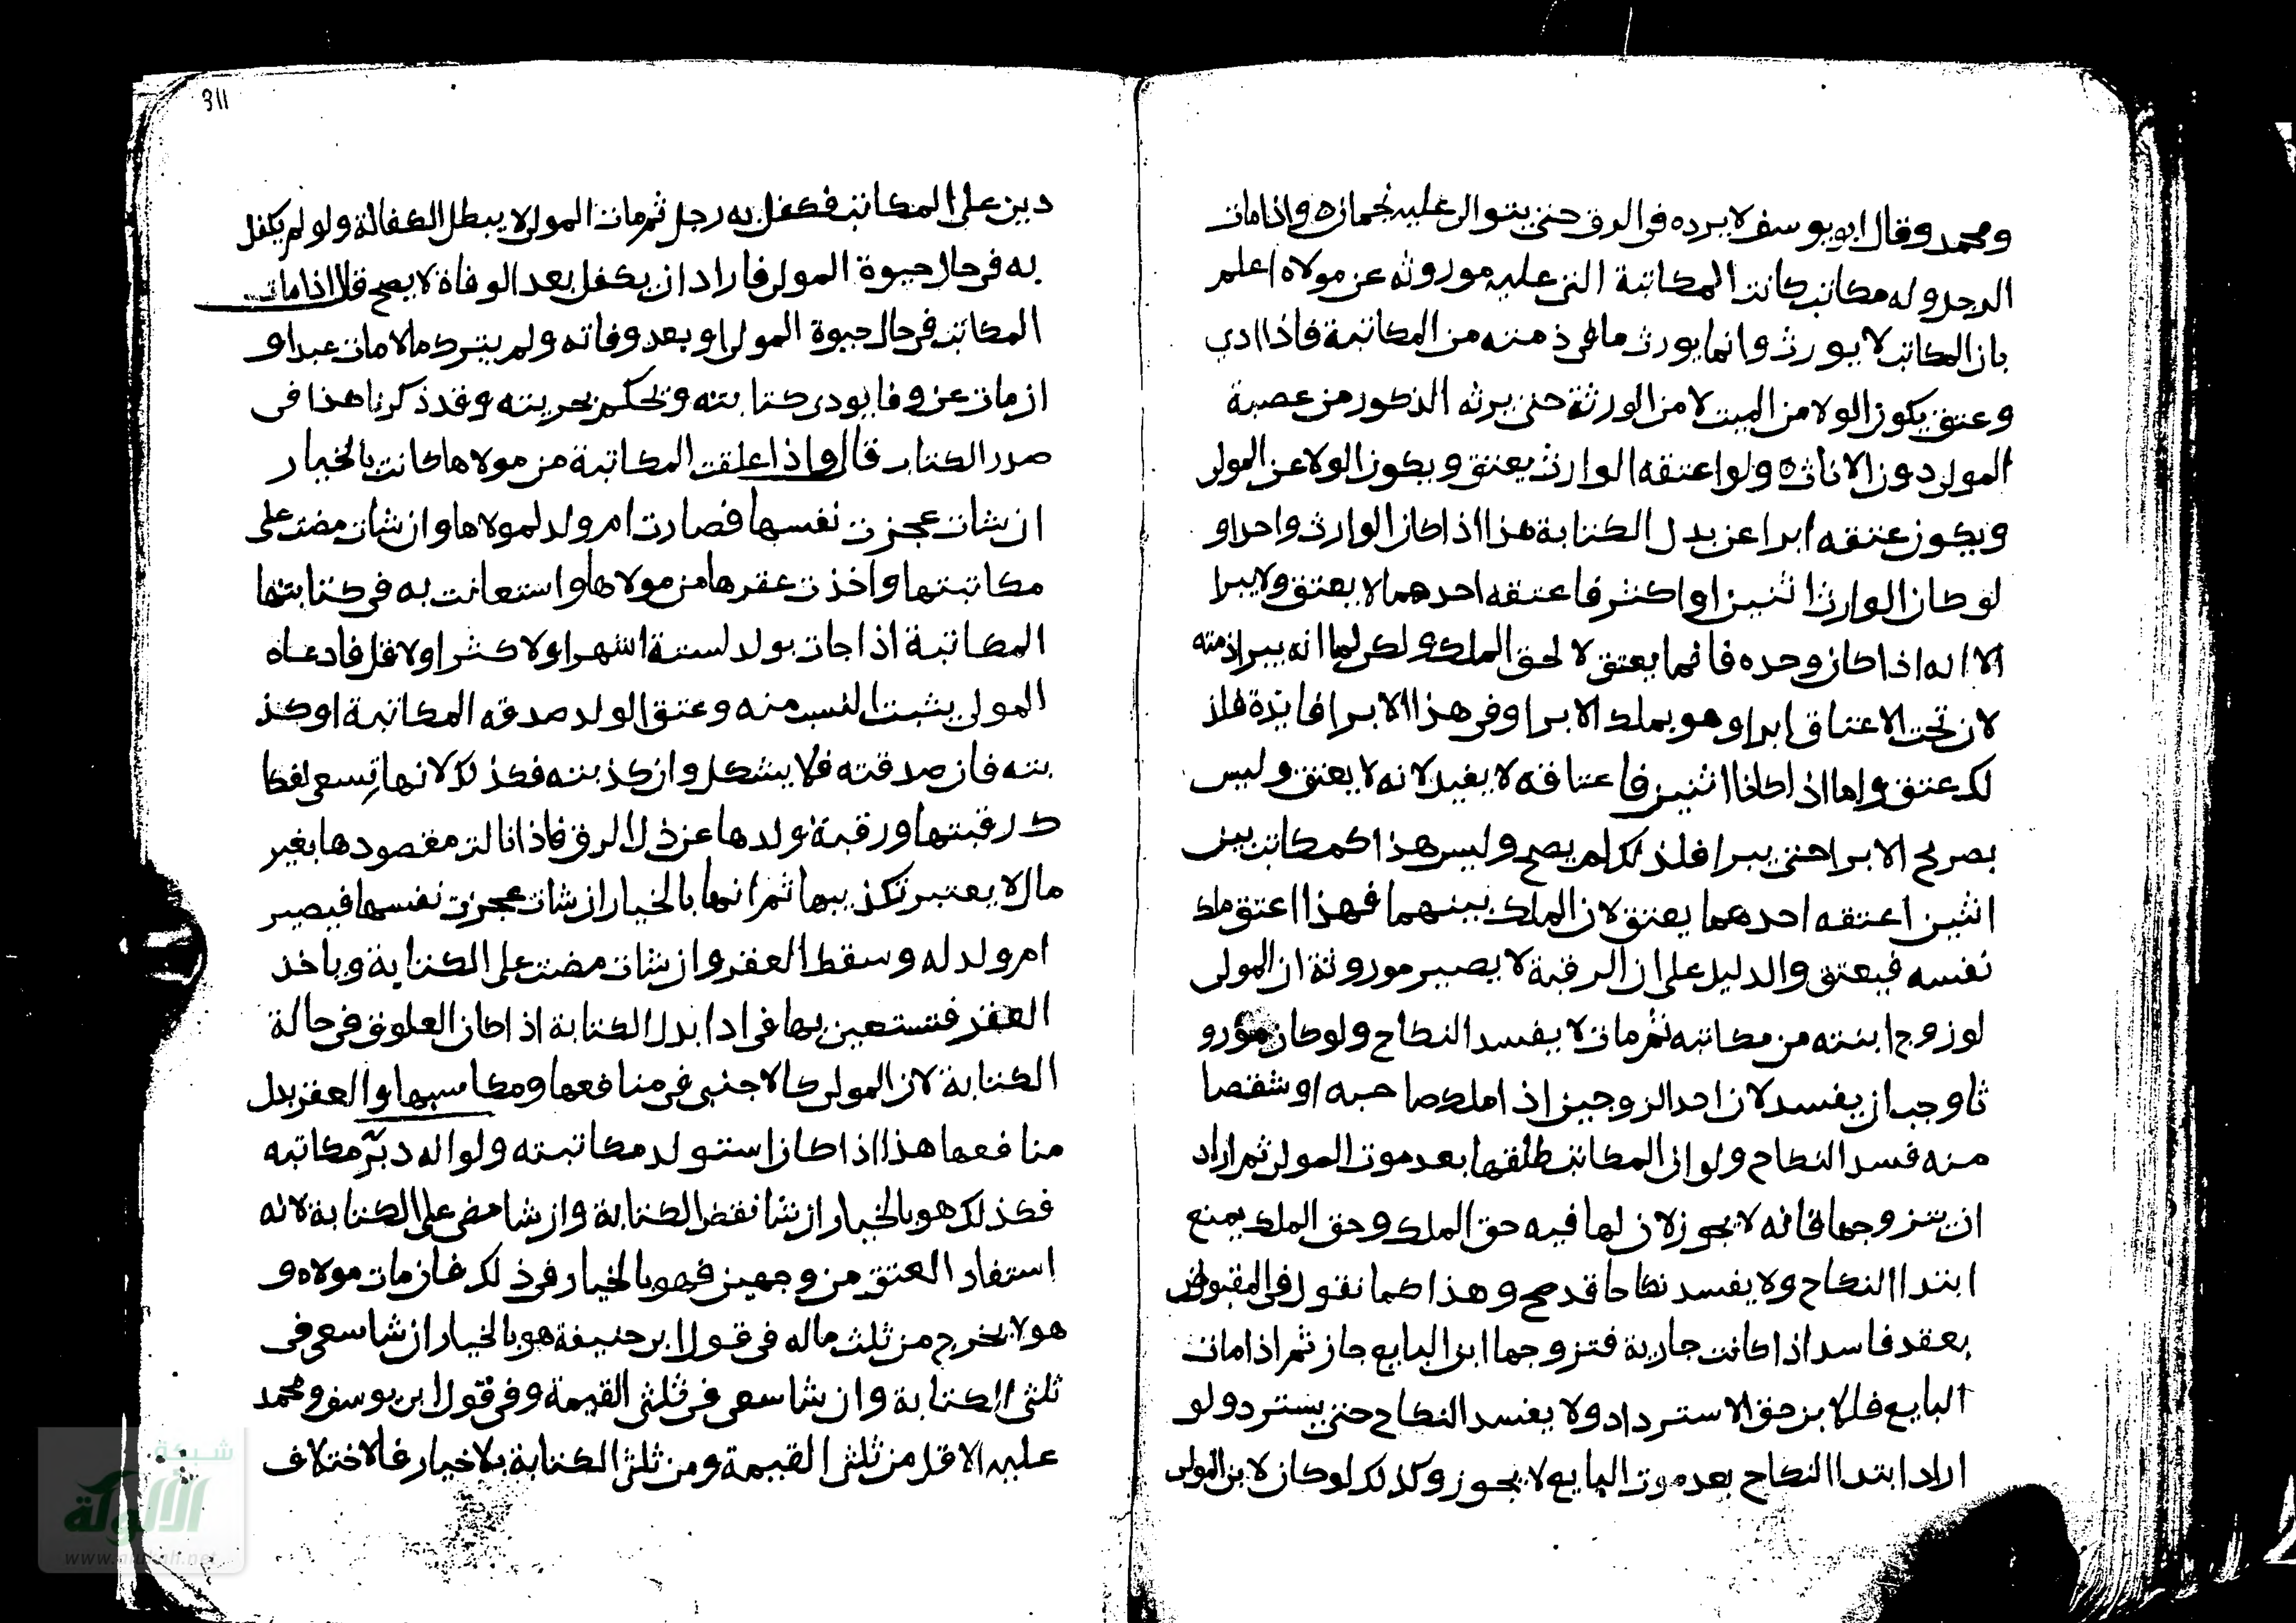 ومحمد وقال ابو يوسف لا يرده في الرق حتى يتوالى عليه نجمان ه واذا مات
الرجل وله مكاتب كانت المكاتبة التي عليه موروثه عن مولاه اعلم
بان المكاتب لا يورث وانما يورث ما في ذمته من المكاتبة فاذا ادي
وعتق يكون الولا من الميت لا من الورثة حتى يرثه الذكور من عصبة
المولى دون الاناث ه ولو اعتقه الوارث يعتق ويكون الولا عن المولى
ويكون عتقه ابرا عن بدل الكتابة هذا اذا كان الوارث واحدا و
لو كان الوارث اثنين او اكثر فاعتقه احدهما لا يعتق ولا يبرا
الا انه اذا كان وحده فانما يعتق لا لحق الملك ولكن لما انه يبرا ذمته
لان تحت الاعتاق ابرا وهو يملك الابرا وفي هذا الابرا فايدة فلذ
لك عتق واما اذا كانا اثنين فاعتاقه لا يفيد لانه لا يعتق وليس
بصريح الابرا حتى يبرا فلذلك لم يصح وليس هذا كمكاتب بين
اثنين اعتقه احدهما يعتق لان الملك بينهما فهذا اعتق ملك
نفسه فيعتق والدليل على ان الرقبة لا يصير موروثة ان المولى
لو زوج ابنته من مكاتبه ثم مات لا يفسد النكاح ولو كان مورو
ثا وجب ان يفسد لان احد الزوجين اذا ملك صاحبه او شقصا
منه فسد النكاح ولو ان المكاتب طلقها بعد موت المولى ثم اراد
ان يتزوجها فانه لا يجوز لان لها فيه حق الملك وحق الملك يمنع
ابتدا النكاح ولا يفسد نكاحا قد صح وهذا كما نقول في المقبوض
بعقد فاسد اذا كانت جارية فتزوجها ابن البايع جاز ثم اذا مات
البايع فللابن حق الاسترداد ولا يفسد النكاح حتى يسترد ولو
اراد ابتدا النكاح بعد موت البايع لا يجوز وكذلك لو كان لابن المولى
311
دين على المكاتب فكفل به رجل ثم مات المولى لا يبطل الكفالة ولو لم يكفل
به في حال حيوة المولى فاراد ان يكفل بعد الوفاة لا يصح قال اذا مات
المكاتب في حال حيوة المولى او بعد وفاته ولم يترك مالا مات عبدا و
ان مات عن وفا يودى كتابته ويحكم بحريته وقد ذكرنا هذا في
صدر الكتاب قال واذا علقت المكاتبة من مولاها كانت بالخيار
ان شات عجزت نفسها فصارت ام ولد لمولاها وان شات مضت على
مكاتبتها واخذت عقرها من مولاها واستعانت به في كتابتها
المكاتبة اذا جات بولد لستة اشهر او لاكثر او لاقل فادعاه
المولى يثبت النسب منه وعتق الولد صدقه المكاتبة او كذ
بته فان صدقته فلا يشكل وان كذبته فكذلك لانها تسعى لفكا
ك رقبتها ورقبة ولدها عن ذل الرق فاذا نالت مقصودها بغير
مال لا يعتبر تكذيبها ثم انها بالخيار ان شات عجزت نفسها فيصير
ام ولد له وسقط العقر وان شات مضت على الكتابة وياخذ
العقر فتستعين بها في ادا بدل الكتابة اذا كان العلوق في حالة
الكتابة لان المولى كالاجنبي في منافعها ومكاسبها والعقر بدل
منافعها هذا اذا كان استولد مكاتبته ولو انه دبّر مكاتبه
فكذلك هو بالخيار ان شا نقض الكتابة وان شا مضى على الكتابة لانه
استفاد العتق من وجهين فهو بالخيار في ذلك فان مات مولاه و
هو لا يخرج من ثلث ماله في قول ابي حنيفة هو بالخيار ان شا سعى في
ثلثي الكتابة وان شا سعى في ثلثي القيمة وفي قول ابي يوسف ومحمد
عليه الاقل من ثلثي القيمة ومن ثلثي الكتابة بلا خيار فالاختلاف
شبكة
الألوكة
www.alukah.net